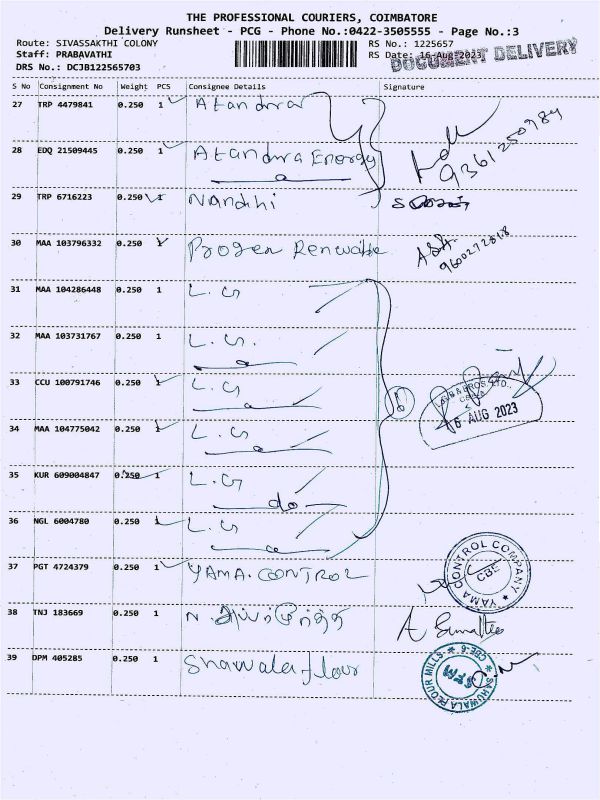 THE PROFESSIONAL COURIERS, COIMBATORE
Delivery Runsheet - PCG - Phone No.:0422-3505555 - Page No.:3
Route: SIVASSAKTHI COLONY RS No.: 1225657
Staff: PRABAVATHI RS Date: 16-Aug-2023
DOCUMENT DELIVERY
DRS No.: DCJB122565703
S No Consignment No Weight PCS Consignee Details Signature
27 TRP 4479841 0.250 1 Atandra
28 EDQ 21509445 0.250 1 Atandra Energy
9361250984
29 TRP 6716223 0.250 1 Nandhi
30 MAA 103796332 0.250 1 Progen
31 MAA 104286448 0.250 1 L.G
32 MAA 103731767 0.250 1 L.G.
33 CCU 100791746 0.250 1 L.G
6
& BROS. LTD.,
6 AUG 2023
34 MAA 104775042 0.250 1 L.G
35 KUR 609004847 0.250 1 L.G
do
36 NGL 6004780 0.250 1 L.G
37 PGT 4724379 0.250 1 YAMA. CONTROL
YAMA CONTROL COMPANY
CBE
38 TNJ 183669 0.250 1
39 DPM 405285 0.250 1 Shawala flour
SAHUWALA FLOUR MILLS CBE-6